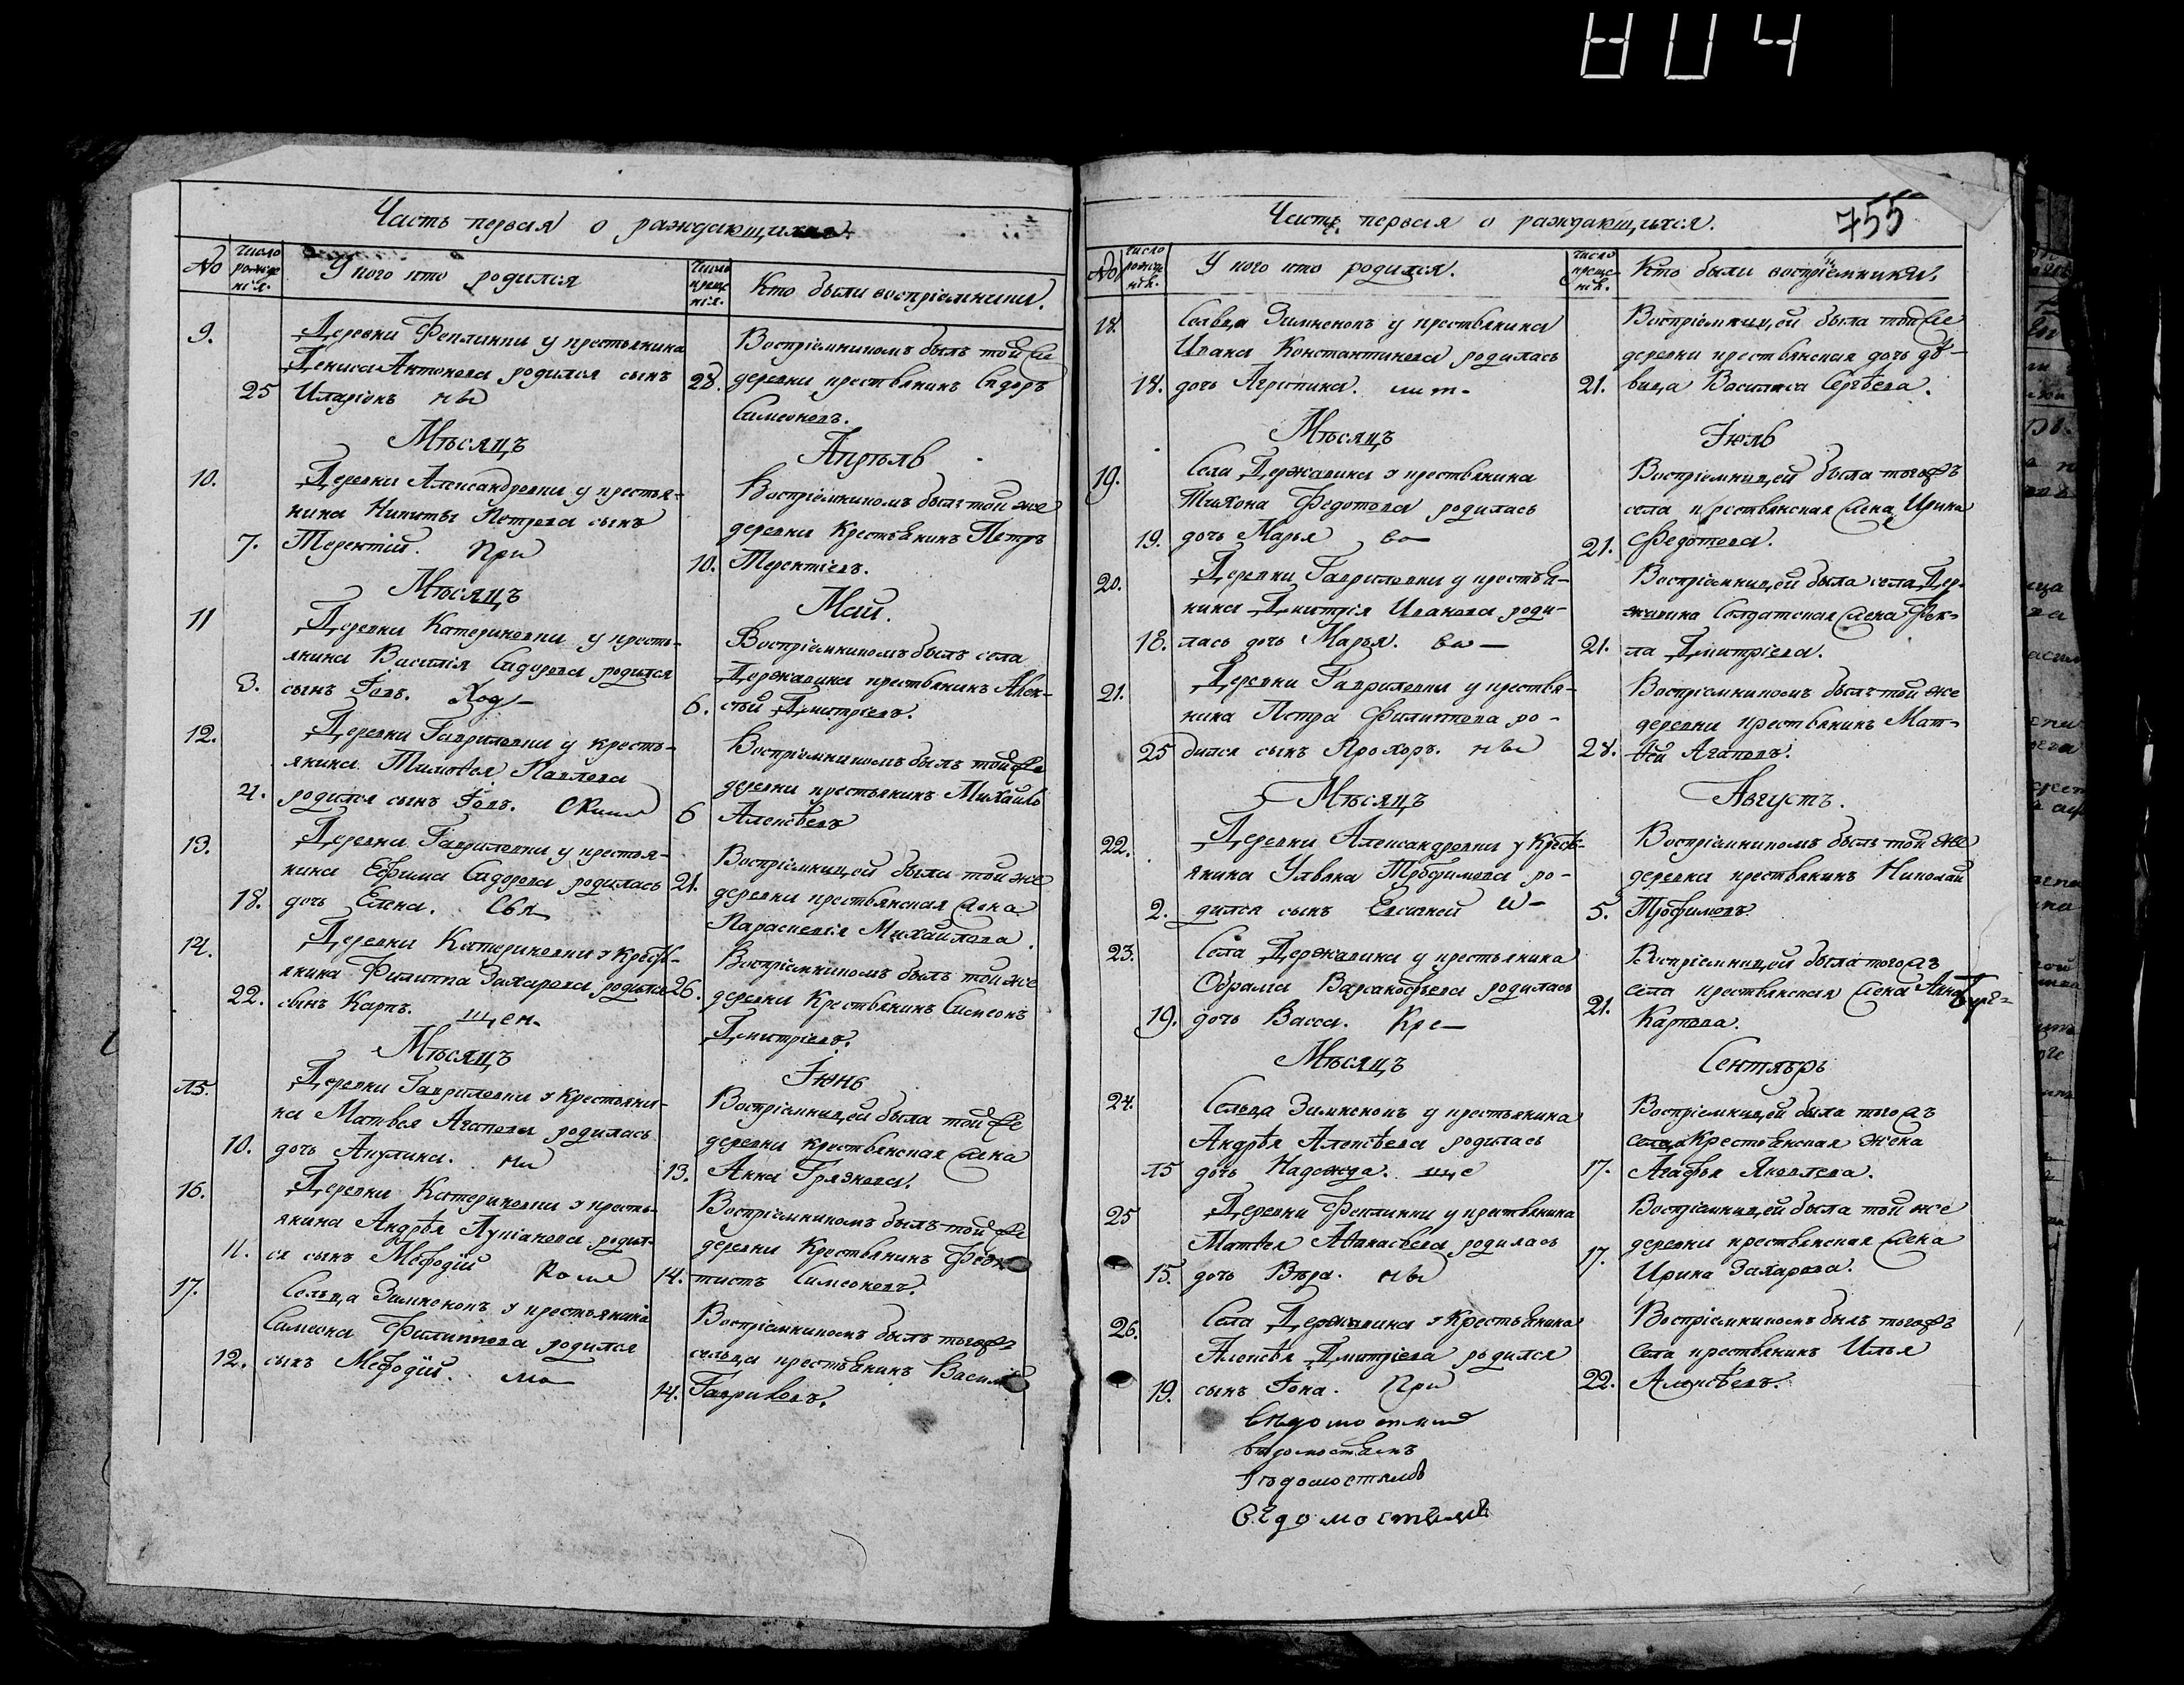 804
Часть первая о раждающихся
№
Число рожде нія.
У кого кто родился
Число креще нія.
Кто были воспріемники.
9.
Деревни Феклинки у крестьянина
Дениса Антонова родился сынъ
25 Иларіонъ
28.
Воспріемникомъ былъ той же
деревни крестьянинъ Сидоръ
Симеоновъ.
Мѣсяцъ Апрѣль
10.
Деревни Александровки у крестья-
нина Никиты Петрова сынъ
7. Терентій. При
10.
Воспріемникомъ былъ той же
деревни Крестьянинъ Петръ
Терентіевъ.
Мѣсяцъ Май.
11
Деревни Катериновки у кресть-
янина Василія Сидорова родился
3. сынъ Іовъ. Ход-
6.
Воспріемникомъ былъ села
Державина крестьянинъ Алек-
сѣй Дмитріевъ.
12.
Деревни Гавриловки у кресть-
янина Тимоѳея Павлова
4. родился сынъ Іовъ.
6
Воспріемникомъ былъ той же
деревни крестьянинъ Михайло
Алексѣевъ
13.
Деревни Гавриловки у крестья-
нина Ефима Сидорова родилась
18. дочь Елена. Свя
21.
Воспріемницей была той же
деревни крестьянская жена
Параскевія Михайлова.
14.
Деревни Катериновки у Кресть-
янина Филиппа Захарова родился
22. сынъ Карпъ. щен.
26.
Воспріемникомъ былъ той же
деревни Крестьянинъ Симеонъ
Дмитріевъ.
Мѣсяцъ Іюнь
15.
Деревни Гавриловки у Крестьяни-
на Матвея Агапова родилась
10. дочь Акулина. ни
13.
Воспріемницей была той же
деревни крестьянская жена
Анна Грязнова.
16.
Деревни Катериновки у кресть-
янина Андрѣя Лукіанова родил-
11. ся сынъ Мефодій
14.
Воспріемникомъ былъ той же
деревни Крестьянинъ Феок
тистъ Симеоновъ.
17.
Сельца Зимненокъ у крестьянина
Симеона Филиппова родился
12. сынъ Мефодій. мо
14.
Воспріемникомъ былъ тогожъ
сельца крестьянинъ Василій
Гавриловъ.
Часть первая о раждающихся.
755
№
Число рожде нія.
У кого кто родился.
Число креще нія.
Кто были воспріемники.
18.
Сельца Зимненокъ у крестьянина
Ивана Константинова родилась
18. дочь Агрипина. лит-
21.
Воспріемницей была той же
деревни крестьянская дочь дѣ-
вица Василиса Сергѣева.
Мѣсяцъ Іюль
19.
Села Державина у крестьянина
Тихона Федотова родилась
19. дочь Марья во-
21.
Воспріемницей была тогожъ
села крестьянская жена Ирина
Федотова.
20.
Деревни Гавриловки у крестья-
нина Дмитрія Иванова роди-
18. лась дочь Марья. во-
21.
Воспріемницей была села Дер-
жавина Солдатская жена Фек-
ла Дмитріева.
21.
Деревни Гавриловки у крестья-
нина Петра Филиппова ро-
25 дился сынъ Прохоръ.
28.
Воспріемникомъ былъ той же
деревни крестьянинъ Мат-
ѳей Агаповъ.
Мѣсяцъ Августъ.
22.
Деревни Александровки у Кресть-
янина Ульяна Трофимова ро-
2. дился сынъ Евсигней И-
5.
Воспріемникомъ былъ той же
деревни крестьянинъ Николай
Трофимовъ.
23.
Села Державина у крестьянина
Абрама Варсанофьева родилась
19. дочь Васса. Кре-
21.
Воспріемницей была тогожъ
села крестьянская жена Анна
Карпова.
Мѣсяцъ Сентябрь
24.
Сельца Зимненокъ у крестьянина
Андрѣя Алексѣева родилась
15 дочь Надежда. ще
17.
Воспріемницей была тогожъ
сельца Крестьянская жена
Агафья Яковлева.
25
Деревни Феклинки у крестьянина
Матѳея Аѳанасьева родилась
15. дочь Вѣра.
17.
Воспріемницей была той же
деревни крестьянская жена
Ирина Захарова.
26.
Села Державина у Крестьянина
Алексѣя Дмитріева родился
19. сынъ Іона. При
22.
Воспріемникомъ былъ тогожъ
Села крестьянинъ Илья
Алексѣевъ.
вѣдомостямъ